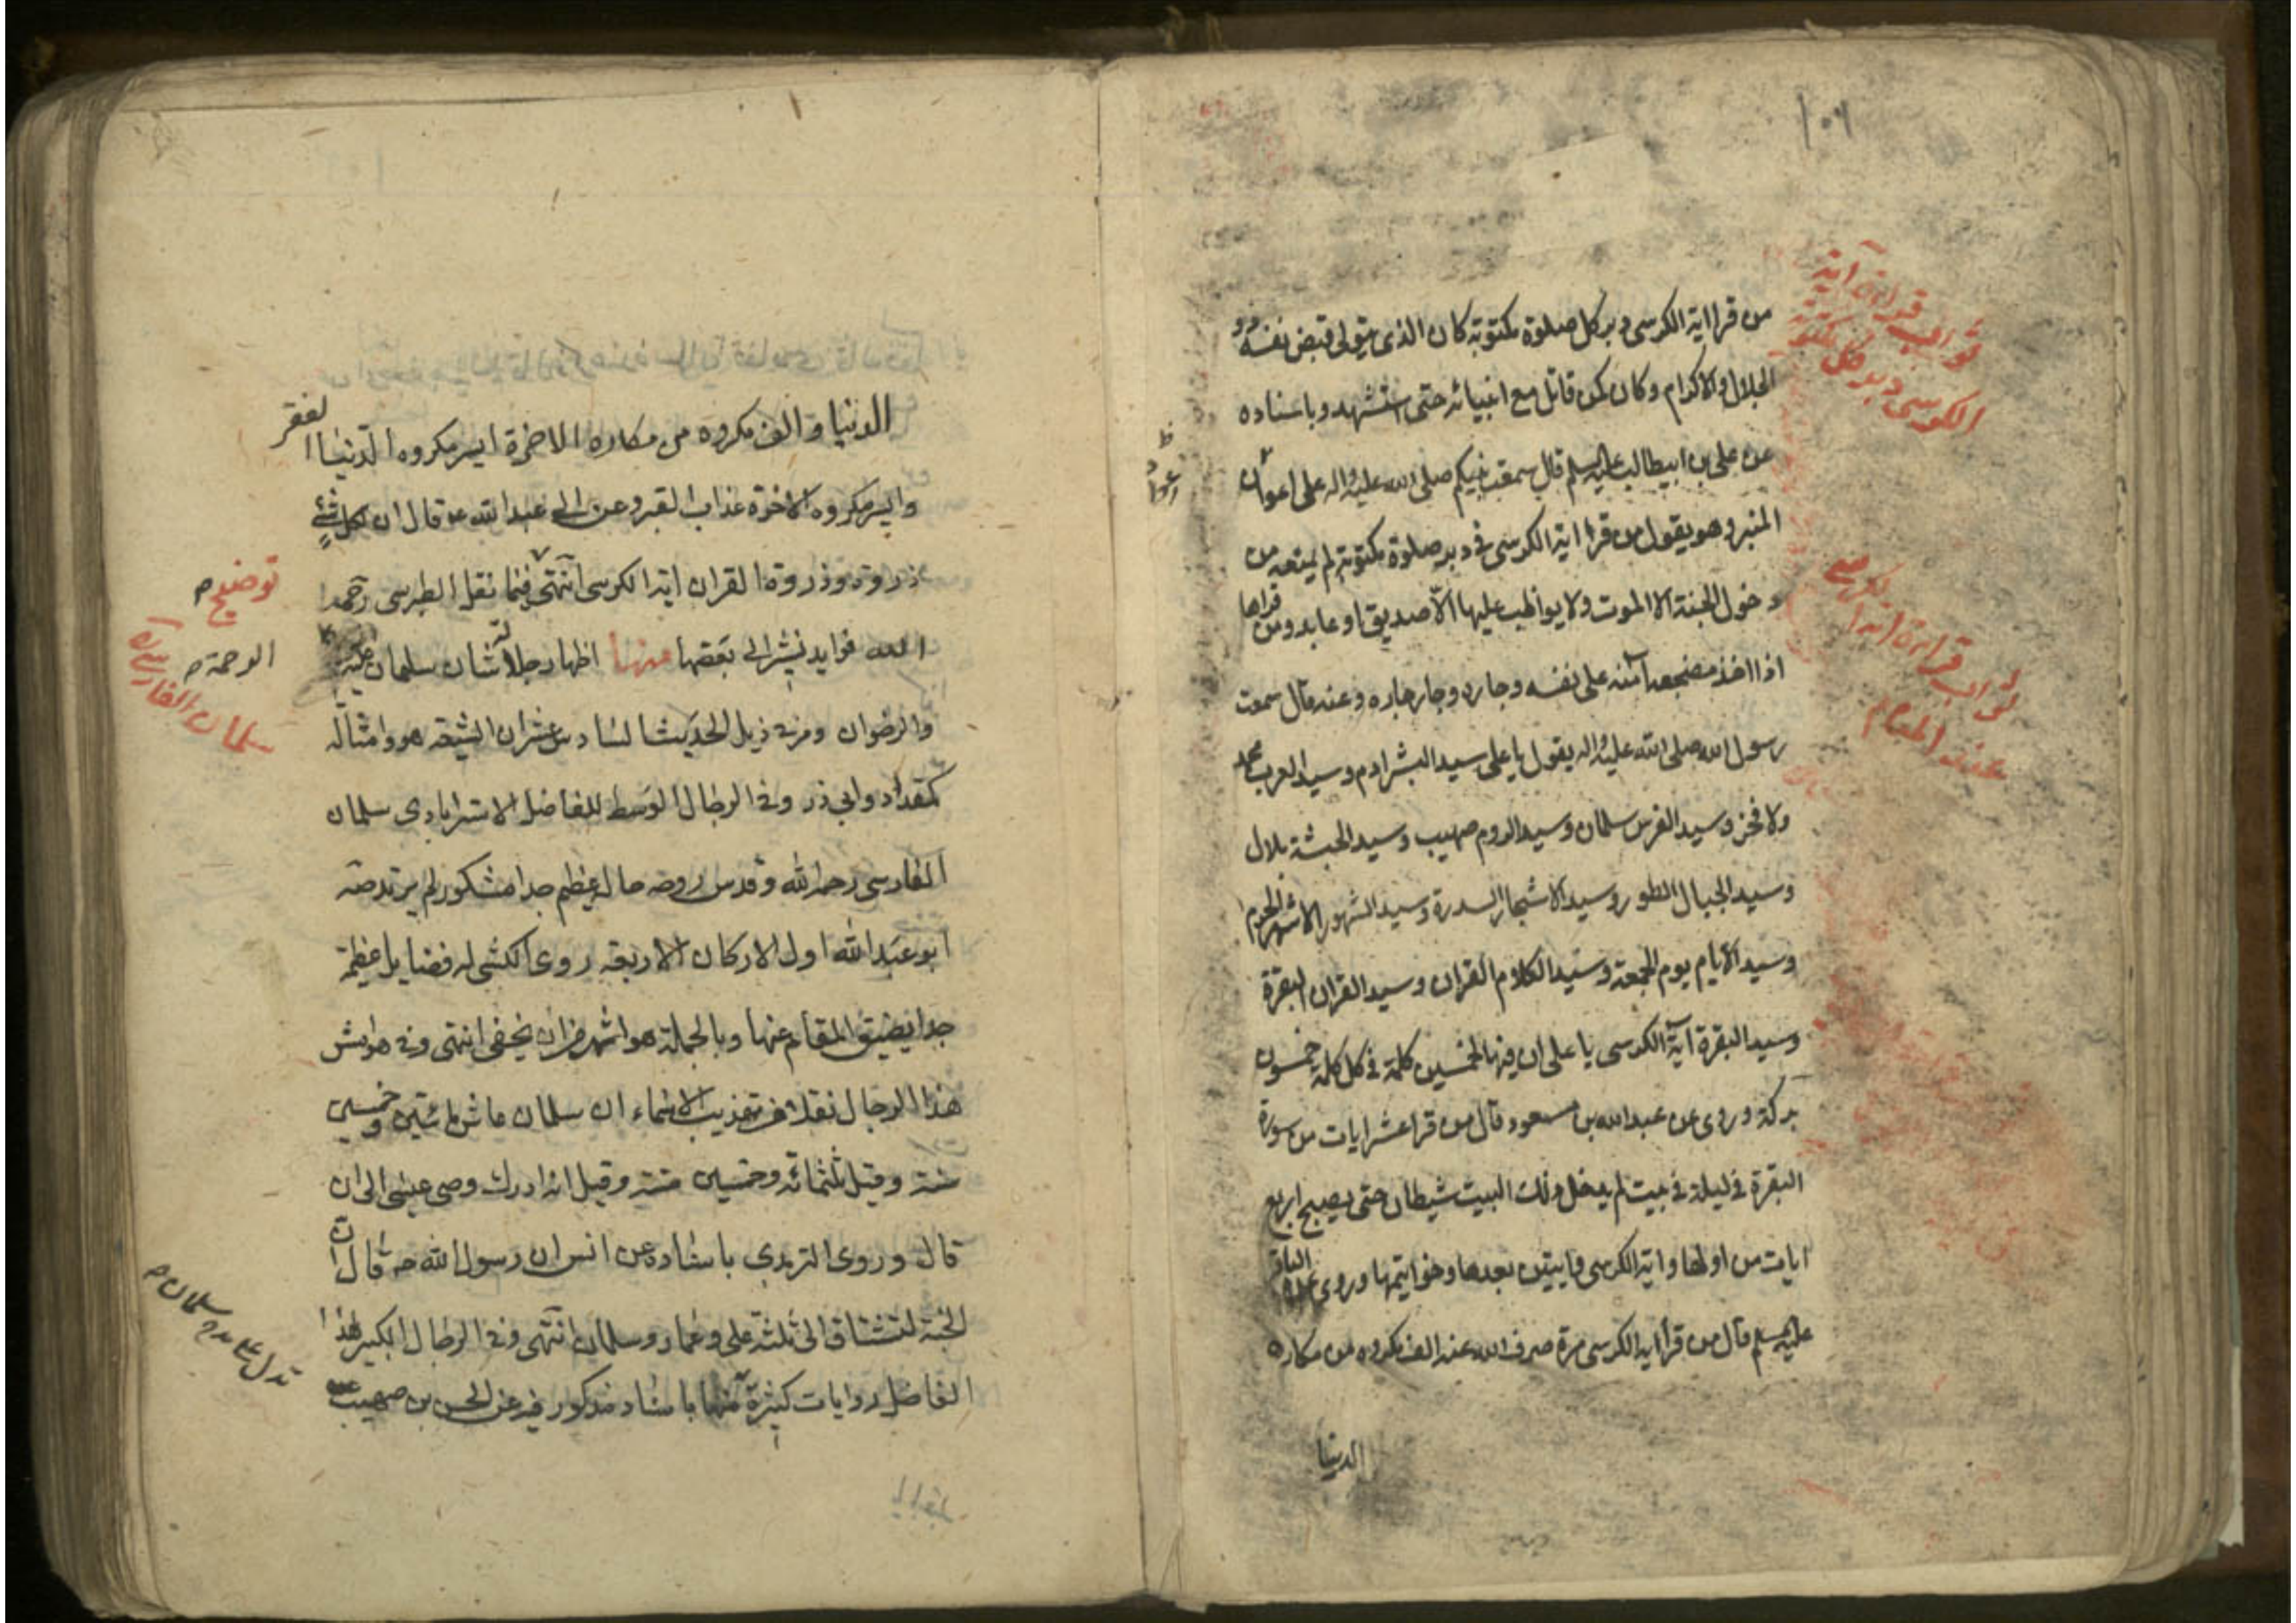 ١٠٦
ثواب قراءة آية
الكرسي دبر كل مكتوبة
من قرا اية الكرسى دبر كل صلوة مكتوبة كان الذى يتولى قبض نفسه ذو
الجلال والاكرام وكان كمن قاتل مع انبيائه حتى استشهد وباسناده
عن على بن ابيطالب عليه السلم قال سمعت نبيكم صلى الله عليه واله على اعواد
المنبر وهو يقول من قرا اية الكرسى فى دبر صلوة مكتوبة لم يمنعه من
دخول الجنة الا الموت ولا يواظب عليها الا صديق او عابد ومن قراها
ثواب قراءة اية الكرسي
عند المنام
اذا اخذ مضجعه آمنه على نفسه وجاره وجار جاره وعنه قال سمعت
رسول الله صلى الله عليه واله يقول يا على سيد البشر ادم وسيد العرب محمد
ولا فخر وسيد الفرس سلمان وسيد الروم صهيب وسيد الحبشة بلال
وسيد الجبال الطور وسيد الاشجار السدرة وسيد الشهور الاشهر الحرم
وسيد الايام يوم الجمعة وسيد الكلام القران وسيد القران البقرة
وسيد البقرة آية الكرسى يا على ان فيها لخمسين كلمة فى كل كلمة خمسون
بركة وروى عن عبد الله بن مسعود قال من قرا عشر ايات من سورة
البقرة فى ليلة فى بيت لم يدخل ذلك البيت شيطان حتى يصبح اربع
ايات من اولها واية الكرسى وايتين بعدها وخواتيمها وروى عن الباقر
عليه السلم قال من قرأ اية الكرسى مرة صرف الله عنه الف مكروه من مكاره
الدنيا
الدنيا والف مكروه من مكاره الاخرة ايسر مكروه الدنيا الفقر
وايسر مكروه الاخرة عذاب القبر وعن ابى عبد الله ع قال ان لكل شئ
ذروة وذروة القران اية الكرسى انتهى فيما نقل الطبرسى رحمه
توضيح
الله فوايد نشير الى بعضها منها اظهار جلالة شان سلمان عليه
الرحمة
سلمان الفارسي
والرضوان ومر فى ذيل الحديث السادس عشر ان الشيعة هو وامثاله
كمقداد وابى ذر وفى الرجال الوسط للفاضل الاسترابادى سلمان
الفارسى رحمه الله وقدس روحه حاله عظيم جدا مشكور لم يرتد
ابو عبد الله اول الاركان الاربعة روى الكشى له فضايل عظيمة
جدا يضيق المقام عنها وبالجملة هو اشهر من ان يخفى انتهى وفى هوامش
هذا الرجال نقلا عن تهذيب الاسماء ان سلمان عاش مائتين وخمسين
سنة وقيل ثلثمائة وخمسين سنة وقيل انه ادرك وصى عيسى الى ان
قال وروى الترمذي باسناده عن انس ان رسول الله ص قال ان
الجنة لتشتاق الى ثلثة على وعمار وسلمان انتهى وفى الرجال الكبير لهذا
الفاضل روايات كثيرة منها باسناد مذكور فيه عن الحسن بن صهيب عن
تدل على مدح سلمان